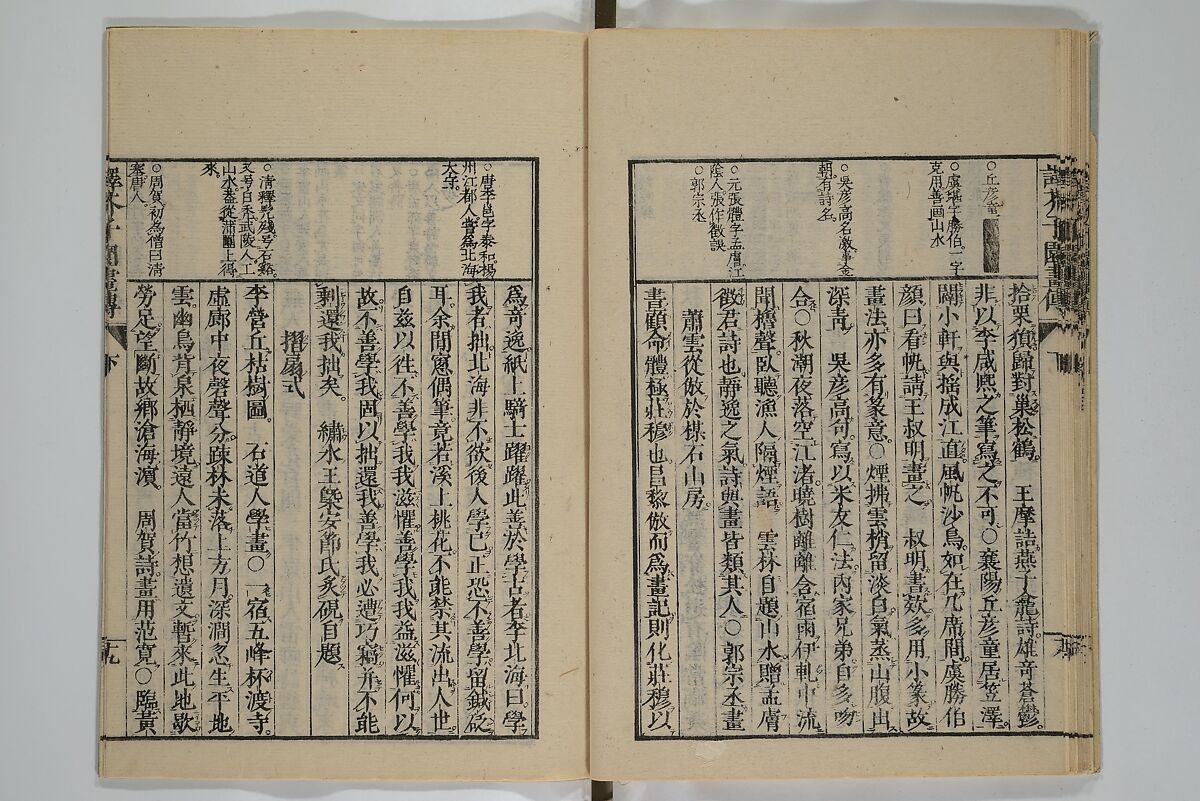 ○丘彦童
○虞堪字勝伯一字
克用善画山水
○吳彦高名激事金
朝有詩名
○元張體字孟膚江
陰人張作徴誤
○郭宗丞
拾栗猿歸對巢松鶴。　王摩詰燕子龕詩雄奇蒼鬱
非以李咸熙之筆寫之不可○襄陽丘彦童居笠澤。
闢小軒與搖成江直風帆沙鳥如在几席間。虞勝伯
顔曰看帆請王叔明畫之　叔明書款多用小篆故
畫法亦多有篆意○煙拂雲梢留淡白氣蒸山腹出
深靑　吳彦高句寫以米友仁法内家兄弟自多吻
合○秋潮夜落空江渚曉樹離離含宿雨伊軋中流
聞櫓聲臥聽漁人隔煙語　雲林自題山水贈孟膚
徴君詩也靜逸之氣詩與畫皆類其人○郭宗丞畫
蕭雲從倣於楳石山房。
書顧命體極莊穆也昌黎倣而爲畫記則化莊穆以
○唐李邕字泰和楊
州江都人嘗爲北海
太守。
○清釋髠殘号石谿。
又号白禿武陵人工
山水蓋從蒲團上得
來。
○周賀初為僧曰清
塞唐人
爲奇逸紙上騎士躍躍此善於學古者李北海曰學
我者拙北海非不欲後人學己正恐不善學留鍼砭
耳。余閒窻偶筆竟若溪上桃花不能禁其流出人世。
自茲以往不善學我我滋懼善學我我益滋懼何以
故不善學我固以拙還我善學我必遭巧竊并不能
剩還我拙矣。　繡水王槩安節氏炙硯自題
摺扇式
李營丘枯樹圖　石道人學畫○一宿五峰杯渡寺。
虛廊中夜磬聲分。疎林未落上方月。深澗忽生平地
雲。幽鳥背泉栖靜境遠人當竹想遺文。暫來此地歇
勞足望斷故鄉滄海濵。　周賀詩畫用范寛○臨黃
下
十九